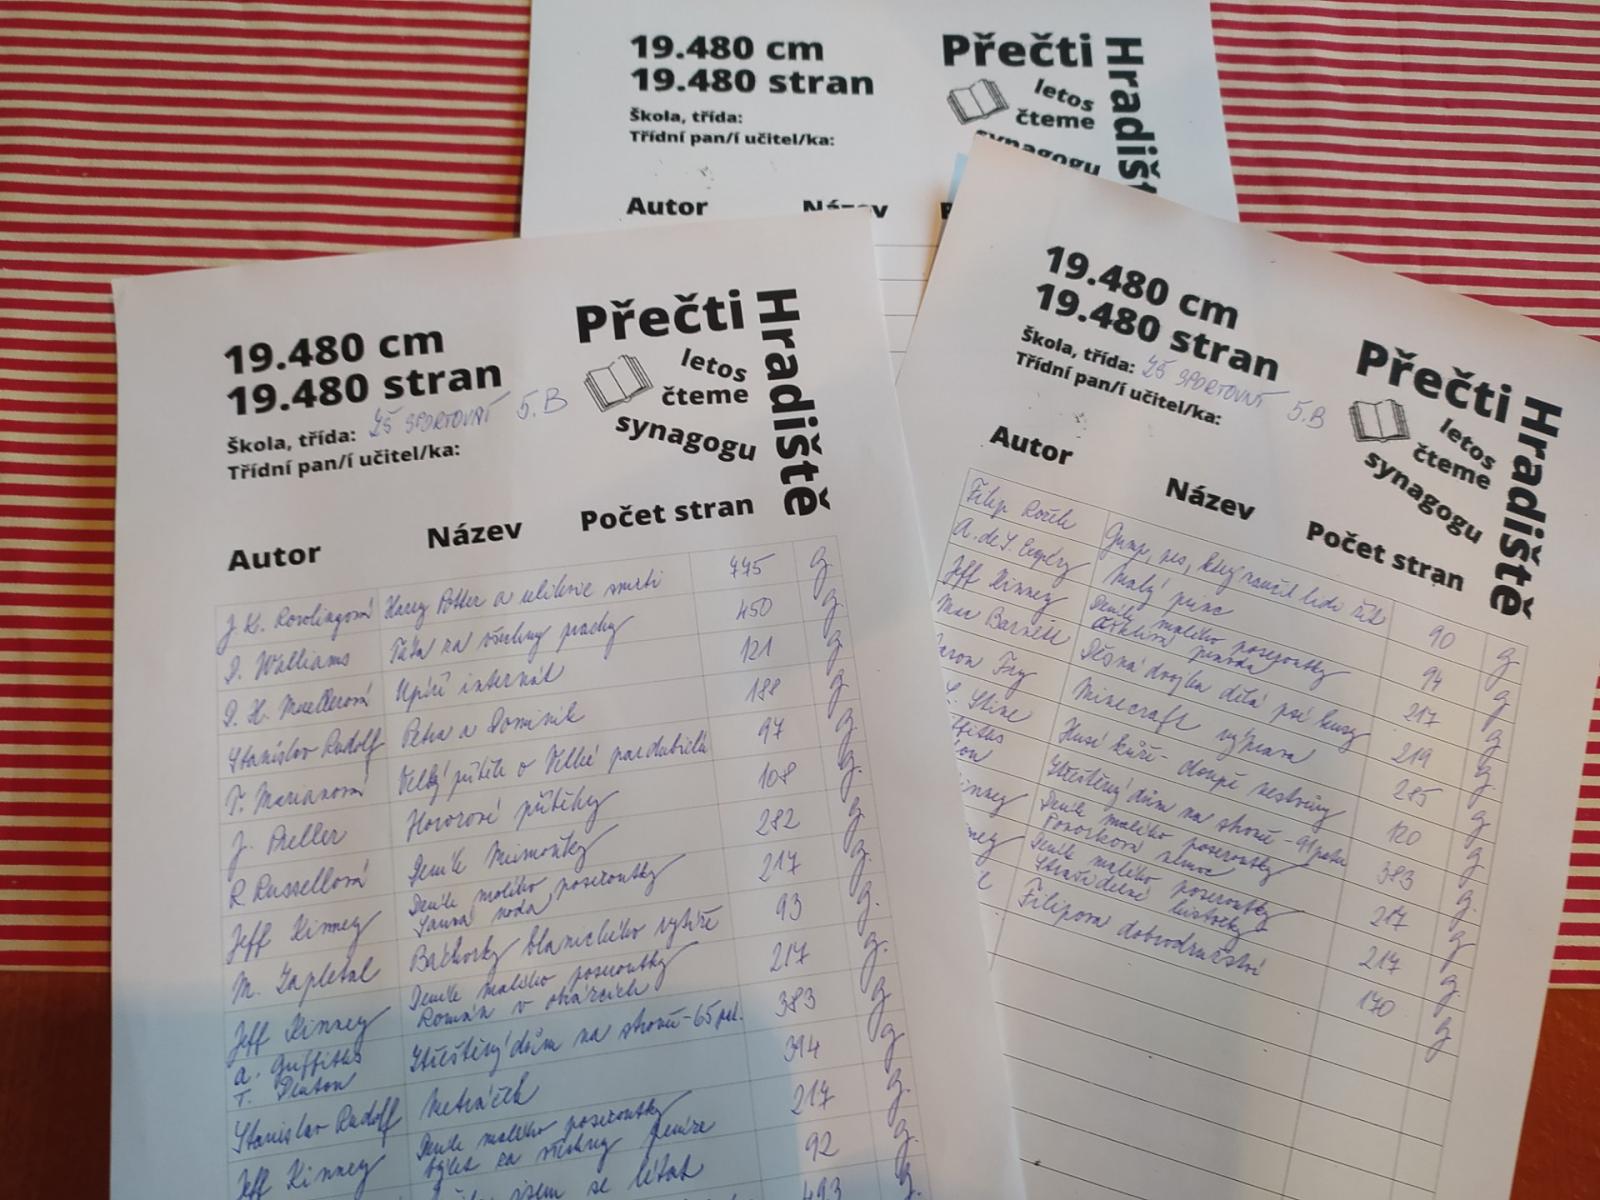 19.480 cm
19.480 stran
Škola, třída:
Třídní pan/í učitel/ka:
Přečti
Hradišt
letos
čteme
synagogu
Autor
Název
19.480 cm
19.480 stran
Škola, třída: ZŠ SPORTOVNÍ 5.B
Třídní pan/í učitel/ka:
Přečti
Hradiště
letos
čteme
synagogu
Autor Název Počet stran
J. K. Rowlingová Harry Potter a relikvie smrti 775
D. Walliams Táta na všechny prachy 450
Upíří internát 121
Stanislav Rudolf Petra a Dominik 188
T. Marianová Velký příběh o Velké pardubické 97
J. Preller Hororové příběhy 108
R. Russellová Deník Mimoňky 282
Jeff Kinney Deník malého poseroutky 217
M. Zapletal Báchorky blanického rytíře 93
Jeff Kinney Deník malého poseroutky
Román v obrázcích 217
A. Griffiths
T. Denton Ztřeštěný dům na stromě - 65 pat. 383
Stanislav Rudolf Metráček 394
Jeff Kinney Deník malého poseroutky
Výlet za všechny peníze 217
jsem se létat 92
493
19.480 cm
19.480 stran
Škola, třída: ZŠ SPORTOVNÍ 5.B
Třídní pan/í učitel/ka:
Přečti
Hradiště
letos
čteme
synagogu
Autor Název Počet stran
Filip Rožek Gump, pes, který naučil lidi žít 90
A. de S. Exupéry Malý princ 94
Jeff Kinney Deník malého poseroutky 217
Mac Barnett Děsná dvojka dělá psí kusy 219
Minecraft výprava 285
Stine Husí kůže - doupě nestvůry 120
Ztřeštěný dům na stromě - 91 pater 383
Kinney Deník malého poseroutky
Ponorková nemoc 217
Deník malého poseroutky
Strašidelné historky 217
Filipova dobrodružství 170